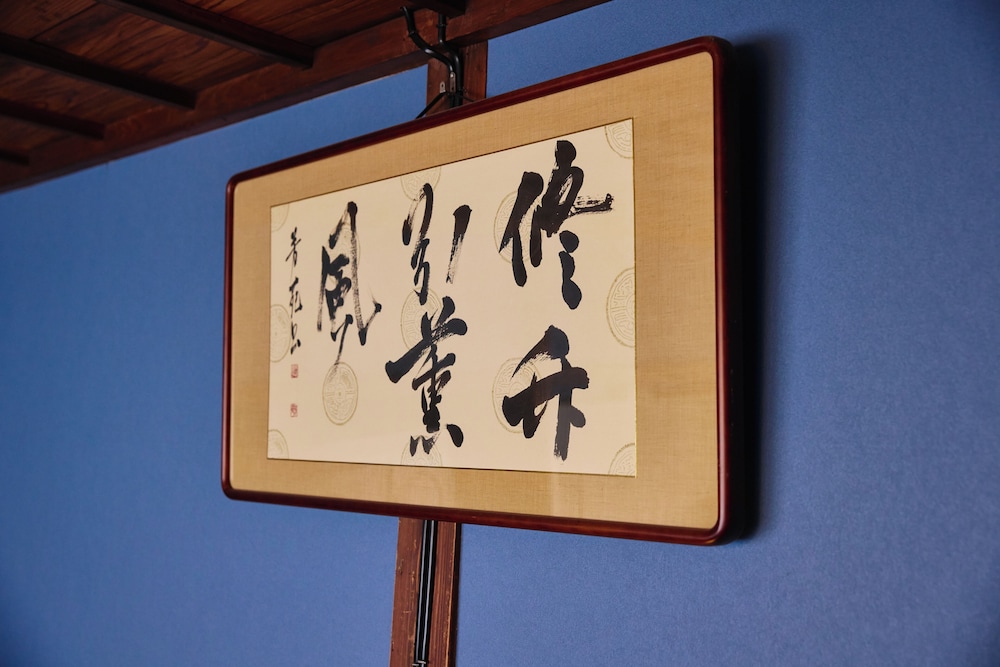 修竹
引薫
風